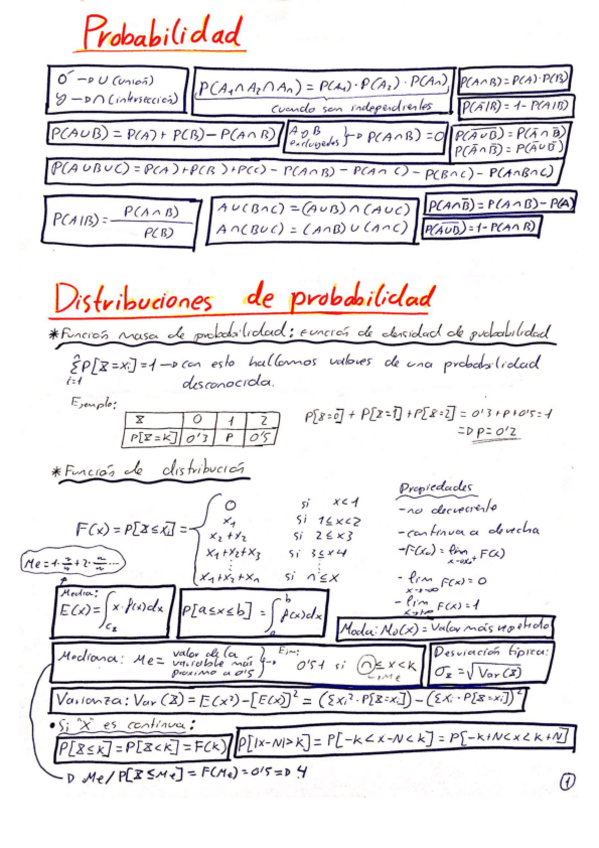 Probabilidad
O —▷ ∪ (unión)
y —▷ ∩ (intersección)
P(A₁∩A₂∩Aₙ) = P(A₁)·P(A₂)·P(Aₙ)
cuando son independientes
P(A∩B)=P(A)·P(B)
P(Ā|B)=1-P(A|B)
P(A∪B) = P(A) + P(B) - P(A∩B)
A y B excluyentes }—▷ P(A∩B)=0
P(A∪B∪C) = P(A)+P(B)+P(C) - P(A∩B) - P(A∩C) - P(B∩C) - P(A∩B∩C)
P(A|B) = P(A∩B) / P(B)
A∪(B∩C) = (A∪B)∩(A∪C)
A∩(B∪C) = (A∩B)∪(A∩C)
P(A∩B̄)=P(A∩B)-P(A)
Distribuciones de probabilidad
*Función masa de probabilidad: función de densidad de probabilidad
n Σ i=1 P[X=xi]=1 —▷ con esto hallamos valores de una probabilidad
desconocida.
Ejemplo:
X 0 1 2
P[X=K] 0'3 P 0'5
P[X=0] + P[X=1] + P[X=2] = 0'3+P+0'5=1
=▷ P=0'2
*Función de distribución
Propiedades
F(x) = P[X≤xi] =
0 si x<1
x₁ si 1≤x<2
x₁+x₂ si 2≤x≤3
x₁+x₂+x₃ si 3≤x<4
⋮
x₁+x₂+xₙ si n≤x
-no decreciente
-continua a derecha
-F(x₀)=lim x→x₀⁺ F(x)
-lim x→-∞ F(x)=0
-lim x→+∞ F(x)=1
Media:
E(x)=∫ x·f(x)dx
P[a≤x≤b] = ∫ₐᵇ f(x)dx
Moda: Mo(x)=Valor más repetido
Mediana: Me= valor de la variable más próximo a 0'5
Ejm: 0'51 si n≤x<k
Me
Desviación típica:
σx=√Var(X)
Varianza: Var(X) = E(x²)-[E(x)]² = (Σxi²·P[X=xi])-(Σxi·P[X=xi])²
• Si "X" es continua:
P[X≤k]=P[X<k]=F(k)
P[|x-N|>k]=P[-k<x-N<k]=P[-k+N<x<k+N]
▷ Me/P[X≤Me]=F(Me)=0'5=▷ 4
1